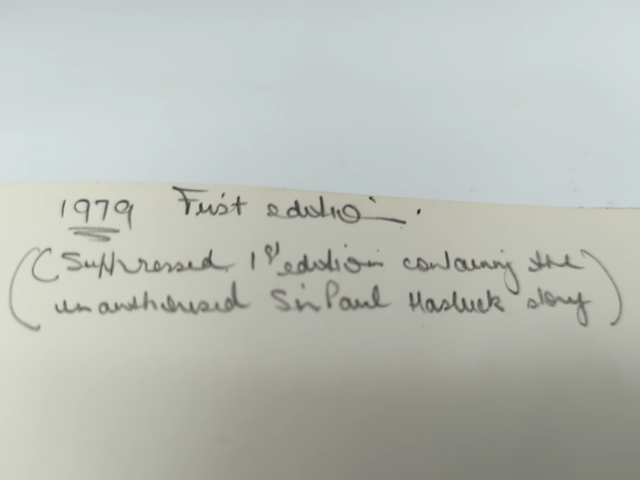 1979 First edition.
(Suppressed 1st edition containing the
unauthorised Sir Paul Hasluck story)